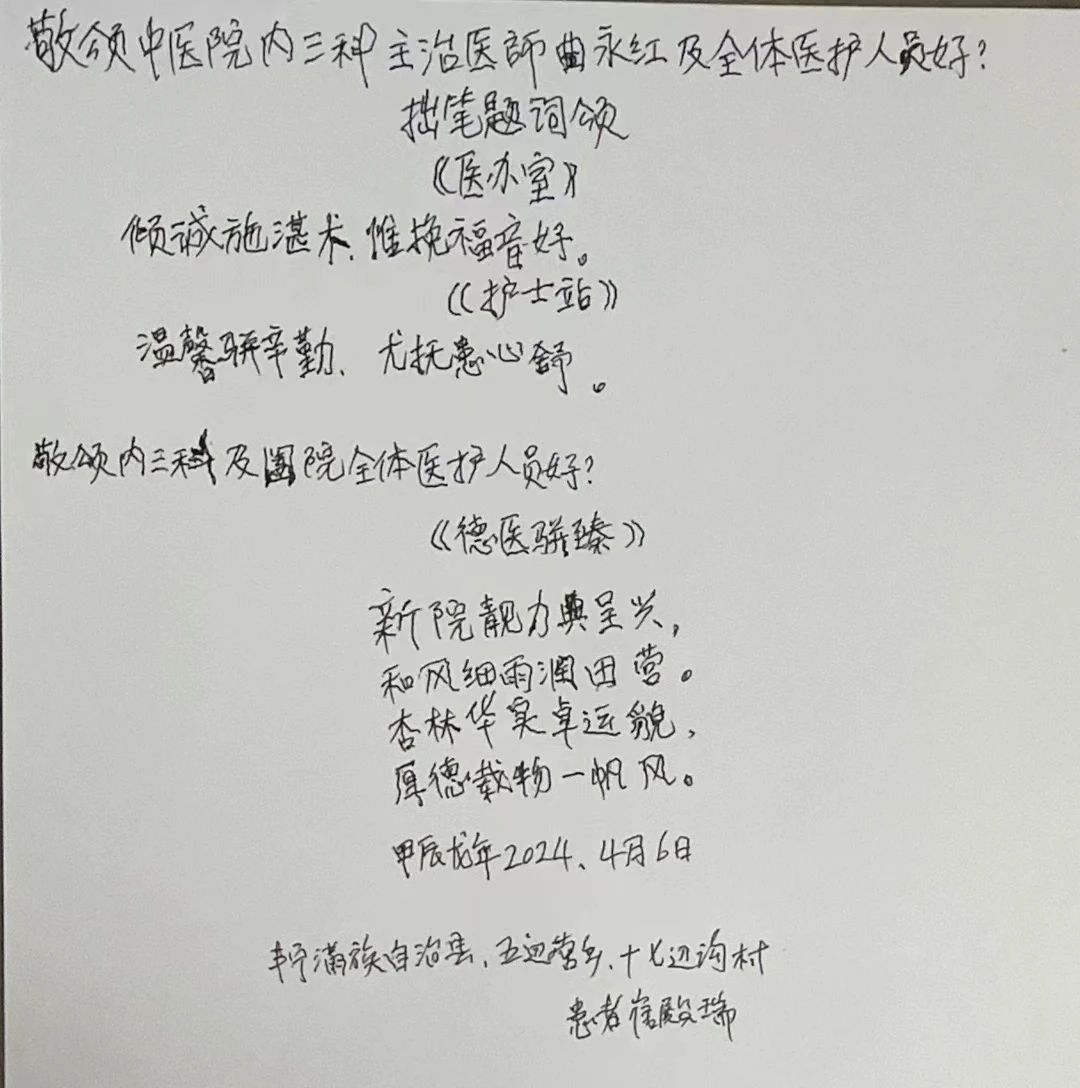 敬颂中医院内三科主治医師曲永红及全体医护人员好？
拙笔题词颂
《医办室》
倾诚施湛术、惟挽福音好。
《护士站》
温馨骈辛勤、尤抚患心舒。
敬颂内三科及国院全体医护人员好？
《德医骈臻》
新院靓力典呈兴，
和风细雨润田营。
杏林华实卓远貌，
厚德载物一帆风。
甲辰龙年2024、4月6日
丰宁满族自治县、五道营乡、十七道沟村
患者崔殿瑞